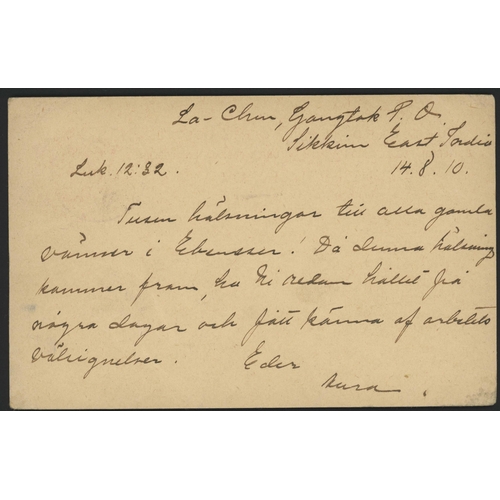 La-Chen, Gangtok P. O.
Sikkim East India
Luk. 12:32. 14.8.10.
Tusen hälsningar till alla gamla
vänner i Ebenezer! Då denna hälsning
kommer fram, ha Ni redan hållit på
några dagar och fått känna af arbetets
välsignelser. Eder